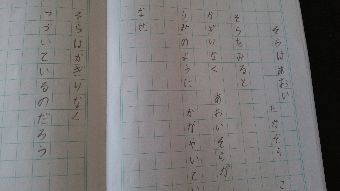 そらはあおい たかそら
そらをみると
かぎりなく あおいそらが
うみのように かがやいてい
なぜ
そらはかぎりなく
つづいているのだろう